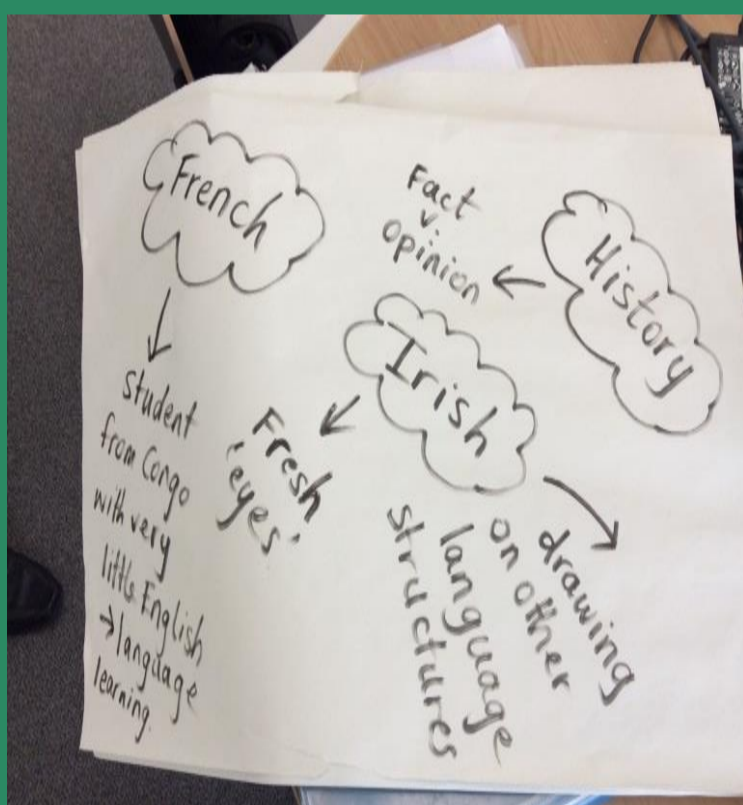 French
student
from Congo
with very
little English
→ language
learning.
Fact
v.
opinion
History
Irish
Fresh
'eyes'
drawing
on other
language
structures